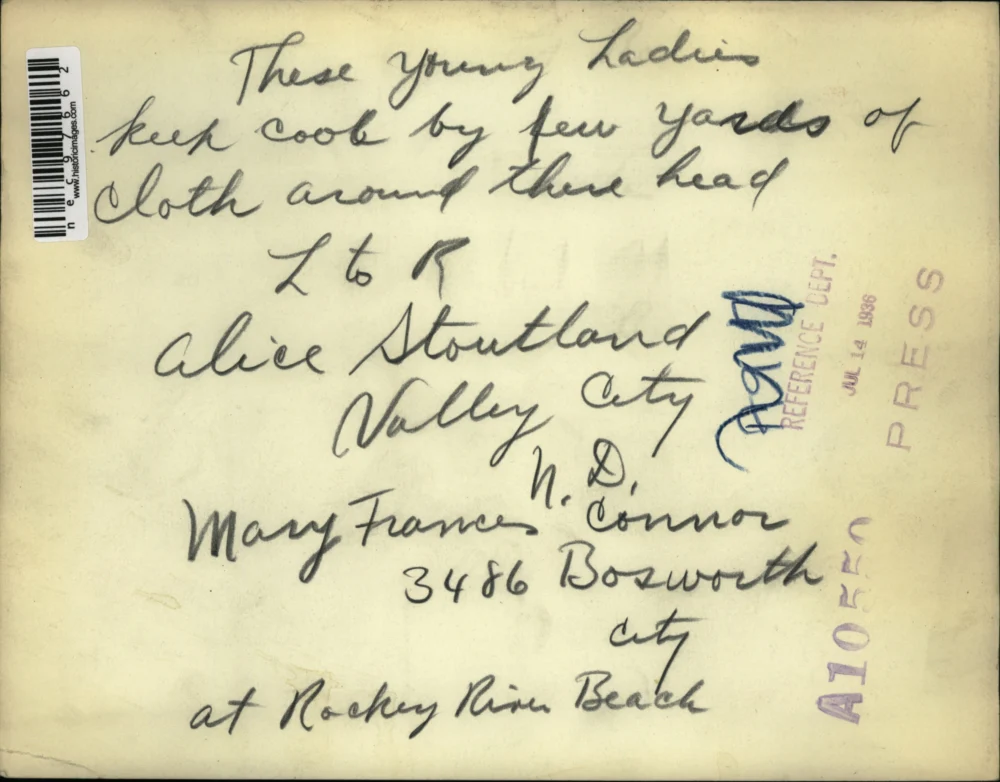 These young Ladies
keep cool by few yards of
cloth around there head
L to R
Alice Stoutland
Valley City
N. D.
Mary Frances Connor
3486 Bosworth
City
at Rockey River Beach
REFERENCE DEPT.
JUL 14 1936
PRESS
www.historicimages.com